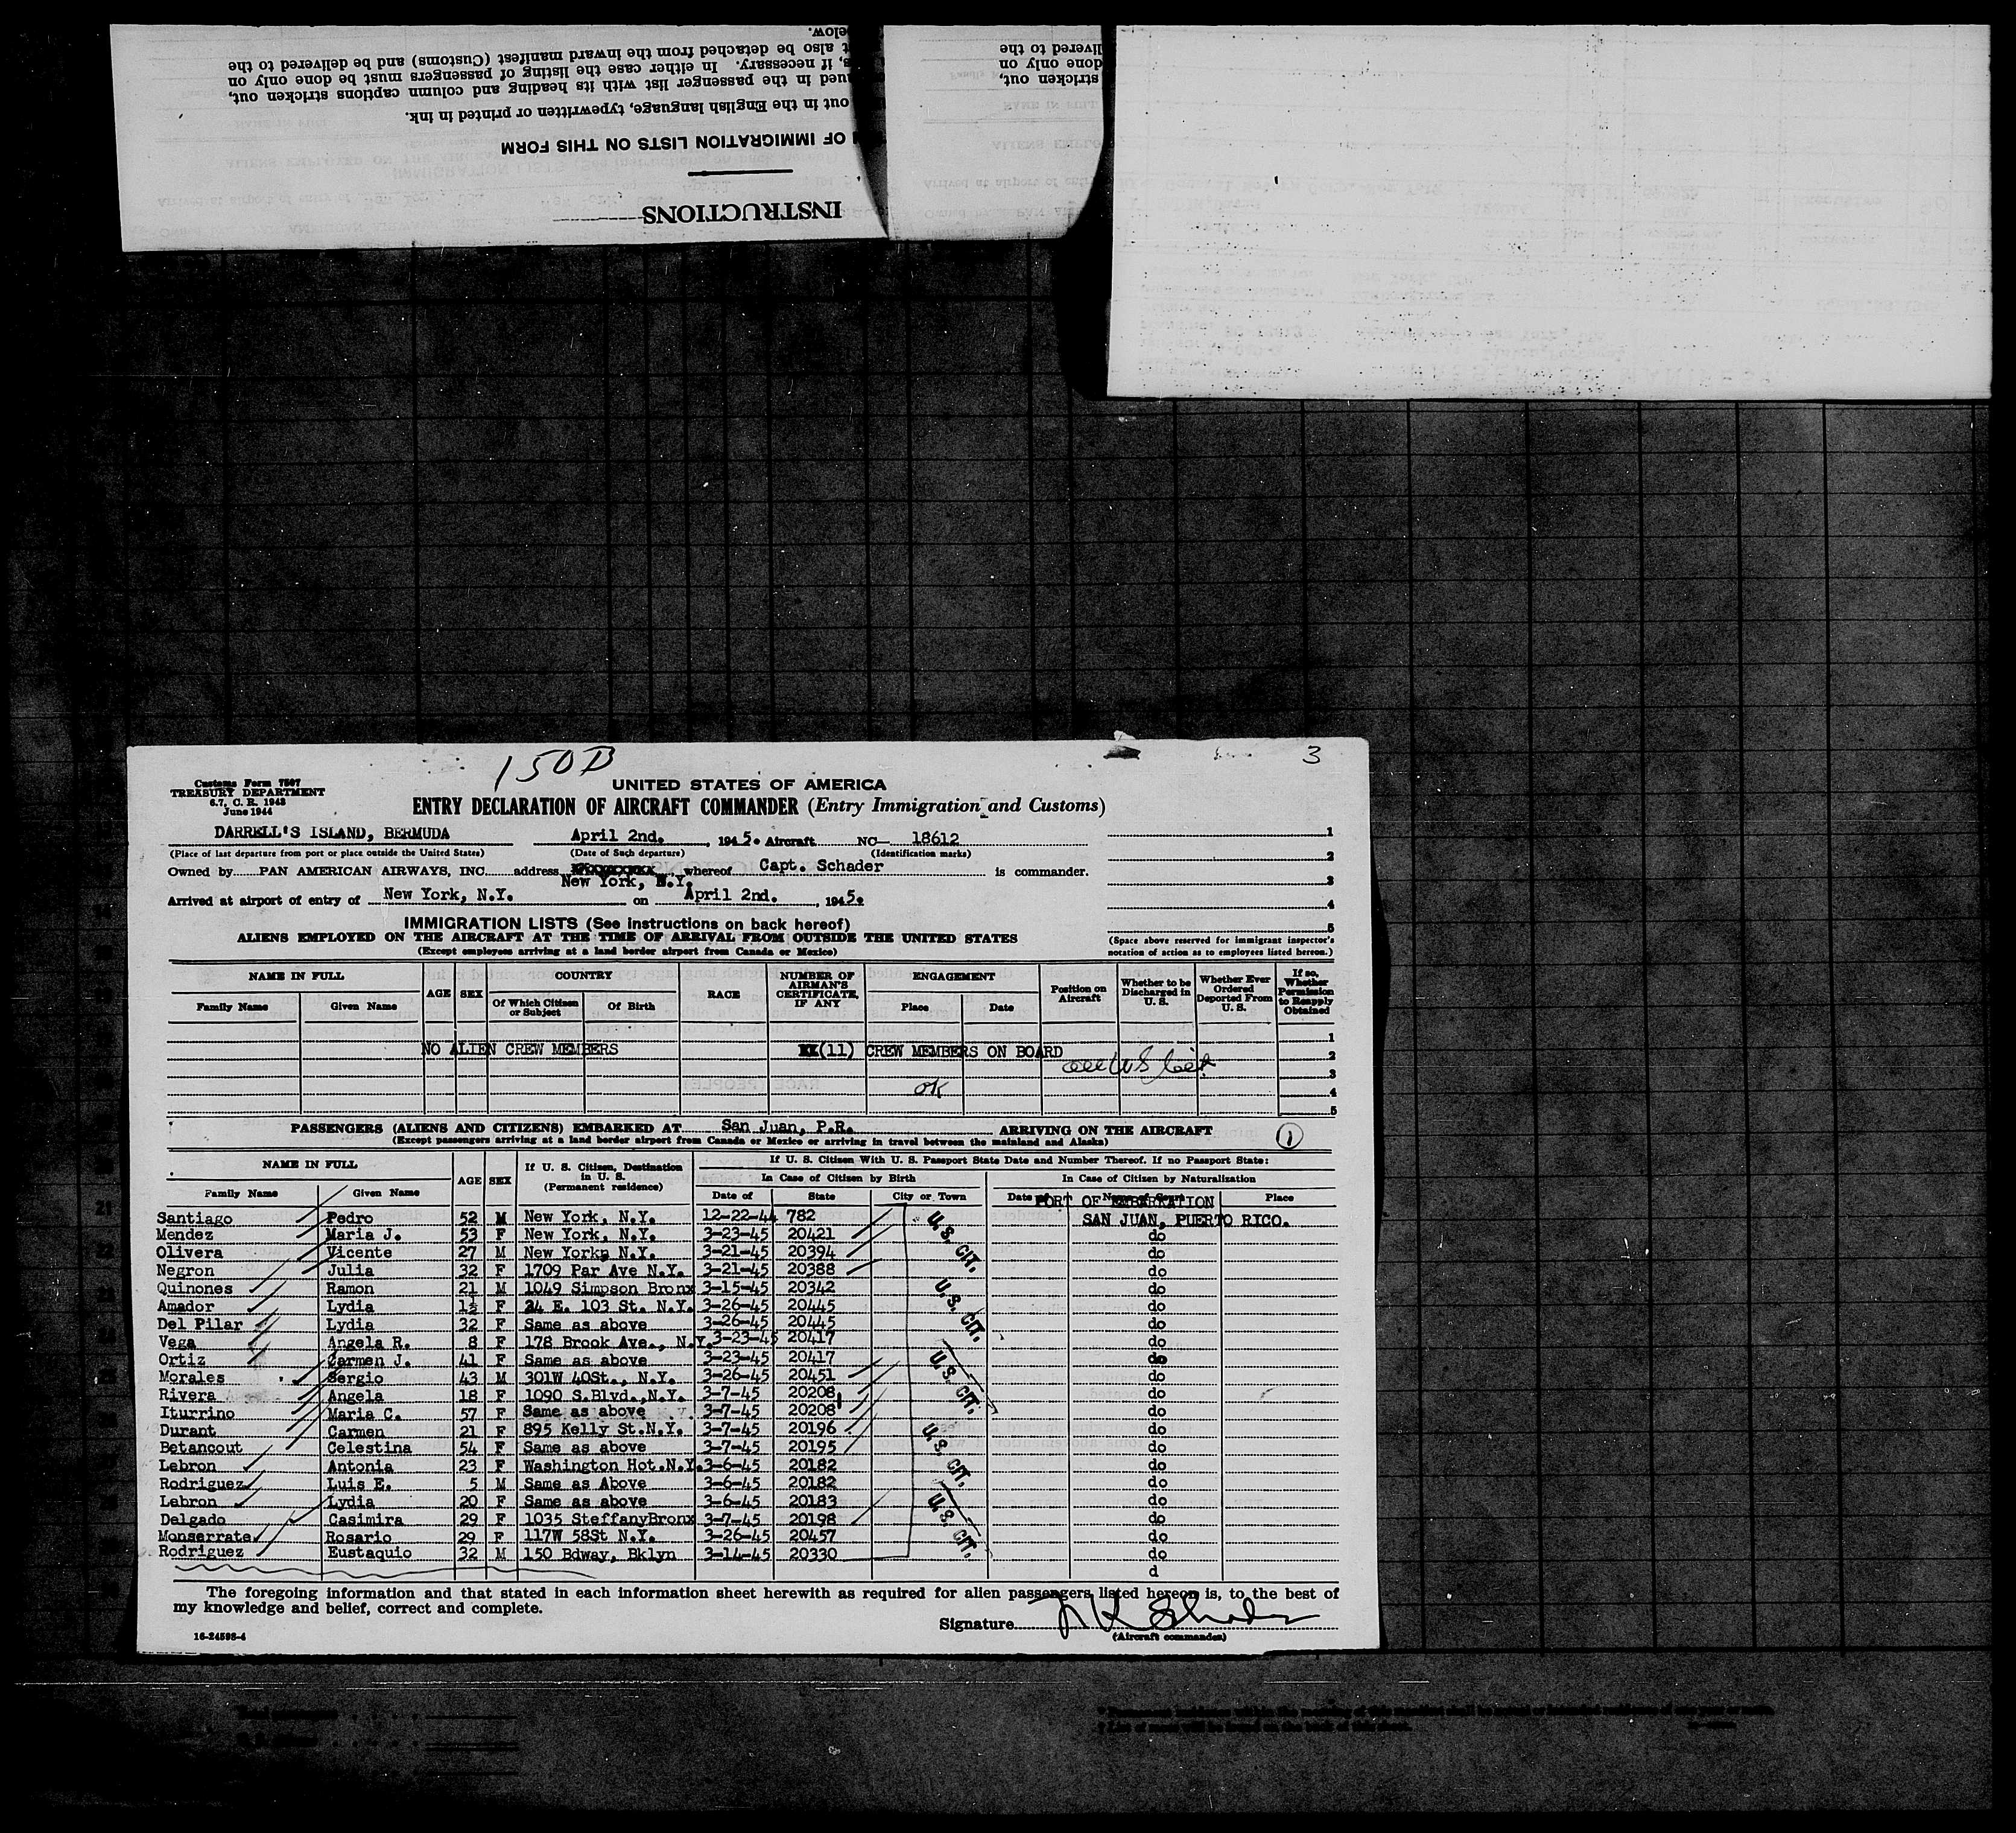 INSTRUCTIONS
OF IMMIGRATION LISTS ON THIS FORM
out in the English language, typewritten or printed in ink.
ued in the passenger list with its heading and column captions stricken out,
s, if necessary. In either case the listing of passengers must be done only on
t also be detached from the inward manifest (Customs) and be delivered to the
below.
stricken out,
done only on
livered to the
150B
3
Customs Form 7507
TREASURY DEPARTMENT
6.7, C. R. 1943
June 1944
UNITED STATES OF AMERICA
ENTRY DECLARATION OF AIRCRAFT COMMANDER (Entry Immigration and Customs)
DARRELL'S ISLAND, BERMUDA April 2nd. , 1945. Aircraft NC— 18612
(Place of last departure from port or place outside the United States) (Date of Such departure) (Identification marks)
Owned by PAN AMERICAN AIRWAYS, INC. address New York, N.Y. whereof Capt. Schader is commander.
Arrived at airport of entry of New York, N.Y. on April 2nd. , 1945.
1
2
3
4
5
IMMIGRATION LISTS (See instructions on back hereof)
ALIENS EMPLOYED ON THE AIRCRAFT AT THE TIME OF ARRIVAL FROM OUTSIDE THE UNITED STATES
(Except employees arriving at a land border airport from Canada or Mexico)
(Space above reserved for immigrant inspector's
notation of action as to employees listed hereon.)
NAME IN FULL AGE SEX COUNTRY RACE NUMBER OF AIRMAN'S CERTIFICATE, IF ANY ENGAGEMENT Position on Aircraft Whether to be Discharged in U. S. Whether Ever Ordered Deported From U. S. If so, Whether Permission to Reapply Obtained
Family Name Given Name Of Which Citizen or Subject Of Birth Place Date
1
NO ALIEN CREW MEMBERS (11) CREW MEMBERS ON BOARD 2
all US Cit. 3
OK 4
5
PASSENGERS (ALIENS AND CITIZENS) EMBARKED AT San Juan, P.R. ARRIVING ON THE AIRCRAFT 1
(Except passengers arriving at a land border airport from Canada or Mexico or arriving in travel between the mainland and Alaska)
NAME IN FULL AGE SEX If U. S. Citizen, Destination in U. S. (Permanent residence) If U. S. Citizen With U. S. Passport State Date and Number Thereof. If no Passport State:
In Case of Citizen by Birth In Case of Citizen by Naturalization
Family Name Given Name Date of State City or Town Date of Name of Court Place
PORT OF EMBARKATION
Santiago Pedro 52 M New York, N.Y. 12-22-44 782 SAN JUAN, PUERTO RICO.
Mendez Maria J. 53 F New York, N.Y. 3-23-45 20421 do
Olivera Vicente 27 M New York, N.Y. 3-21-45 20394 do
Negron Julia 32 F 1709 Par Ave N.Y. 3-21-45 20388 do
Quinones Ramon 21 M 1049 Simpson Bronx 3-15-45 20342 do
Amador Lydia 1½ F 24 E. 103 St. N.Y. 3-26-45 20445 do
Del Pilar Lydia 32 F Same as above 3-26-45 20445 do
Vega Angela R. 8 F 178 Brook Ave., N.Y. 3-23-45 20417 do
Ortiz Carmen J. 41 F Same as above 3-23-45 20417 do
Morales Sergio 43 M 301W 40St., N.Y. 3-26-45 20451 do
Rivera Angela 18 F 1090 S.Blvd.,N.Y. 3-7-45 20208 do
Iturrino Maria C. 57 F Same as above 3-7-45 20208 do
Durant Carmen 21 F 895 Kelly St.N.Y. 3-7-45 20196 do
Betancout Celestina 54 F Same as above 3-7-45 20195 do
Lebron Antonia 23 F Washington Hot.N.Y. 3-6-45 20182 do
Rodriguez Luis E. 5 M Same as Above 3-6-45 20182 do
Lebron Lydia 20 F Same as above 3-6-45 20183 do
Delgado Casimira 29 F 1035 SteffanyBronx 3-7-45 20198 do
Monserrate Rosario 29 F 117W 58St N.Y. 3-26-45 20457 do
Rodriguez Eustaquio 32 M 150 Bdway, Bklyn 3-14-45 20330 do
d
U. S. CIT.
U. S. CIT.
U. S. CIT.
U. S. CIT.
U. S. CIT.
The foregoing information and that stated in each information sheet herewith as required for alien passengers listed hereon is, to the best of
my knowledge and belief, correct and complete.
Signature
(Aircraft commander)
16-24598-4